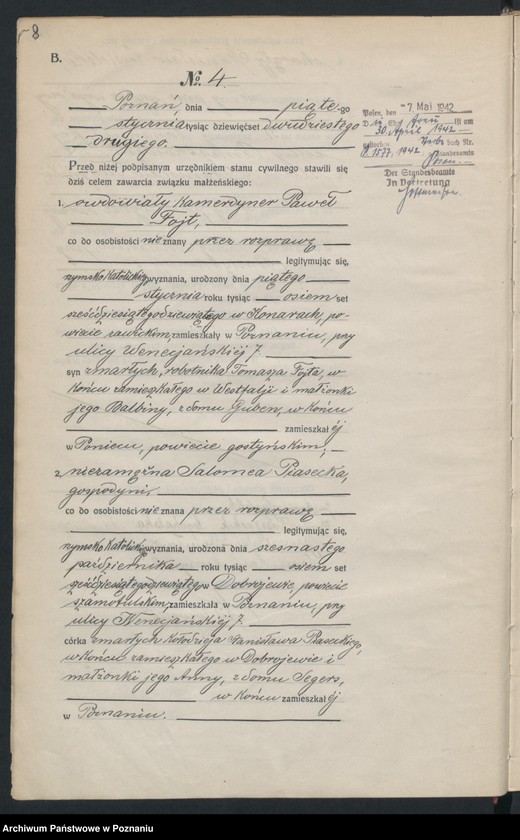 8
B.
No. 4
Poznań, dnia piąte-go
stycznia tysiąc dziewięćset dwudziestego
drugiego.
Przed niżej podpisanym urzędnikiem stanu cywilnego stawili się
dziś celem zawarcia związku małżeńskiego:
1. owdowiały kamerdyner Paweł
Fojt,
co do osobistości nieznany przez rozprawę
legitymując się,
rzymsko katolickiego wyznania, urodzony dnia piątego
stycznia roku tysiąc osiemset
sześćdziesiątegodziewiątego w Konarach, po-
wiecie rawickim, zamieszkały w Poznaniu, przy
ulicy Wenecjańskiej 7.
syn zmarłych, robotnika Tomasza Fojta, w
końcu zamieszkałego w Westfalji i małżonki
jego Balbiny, z domu Guben, w końcu
zamieszkałej
w Poniecu, powiecie gostyńskim; —
2. niezamężna Salomea Piasecka,
gospodyni,
co do osobistości nieznana przez rozprawę
legitymując się,
rzymsko katolickiego wyznania, urodzona dnia szesnastego
października roku tysiąc osiemset
sześćdziesiątegodziewiątego w Dobrojewie, powiecie
szamotulskim, zamieszkała w Poznaniu, przy
ulicy Wenecjańskiej 7.
córka zmarłych kołodzieja Stanisława Piaseckiego,
w końcu zamieszkałego w Dobrojewie i
małżonki jego Anny, z domu Segers,
w końcu zamieszkałej
w Poznaniu.
Posen, den -7. Mai 1942
ist am
30. April 1942
gestorben
1577, 1942 Standesamts
Posen.
Der Standesbeamte
In Vertretung
Archiwum Państwowe w Poznaniu